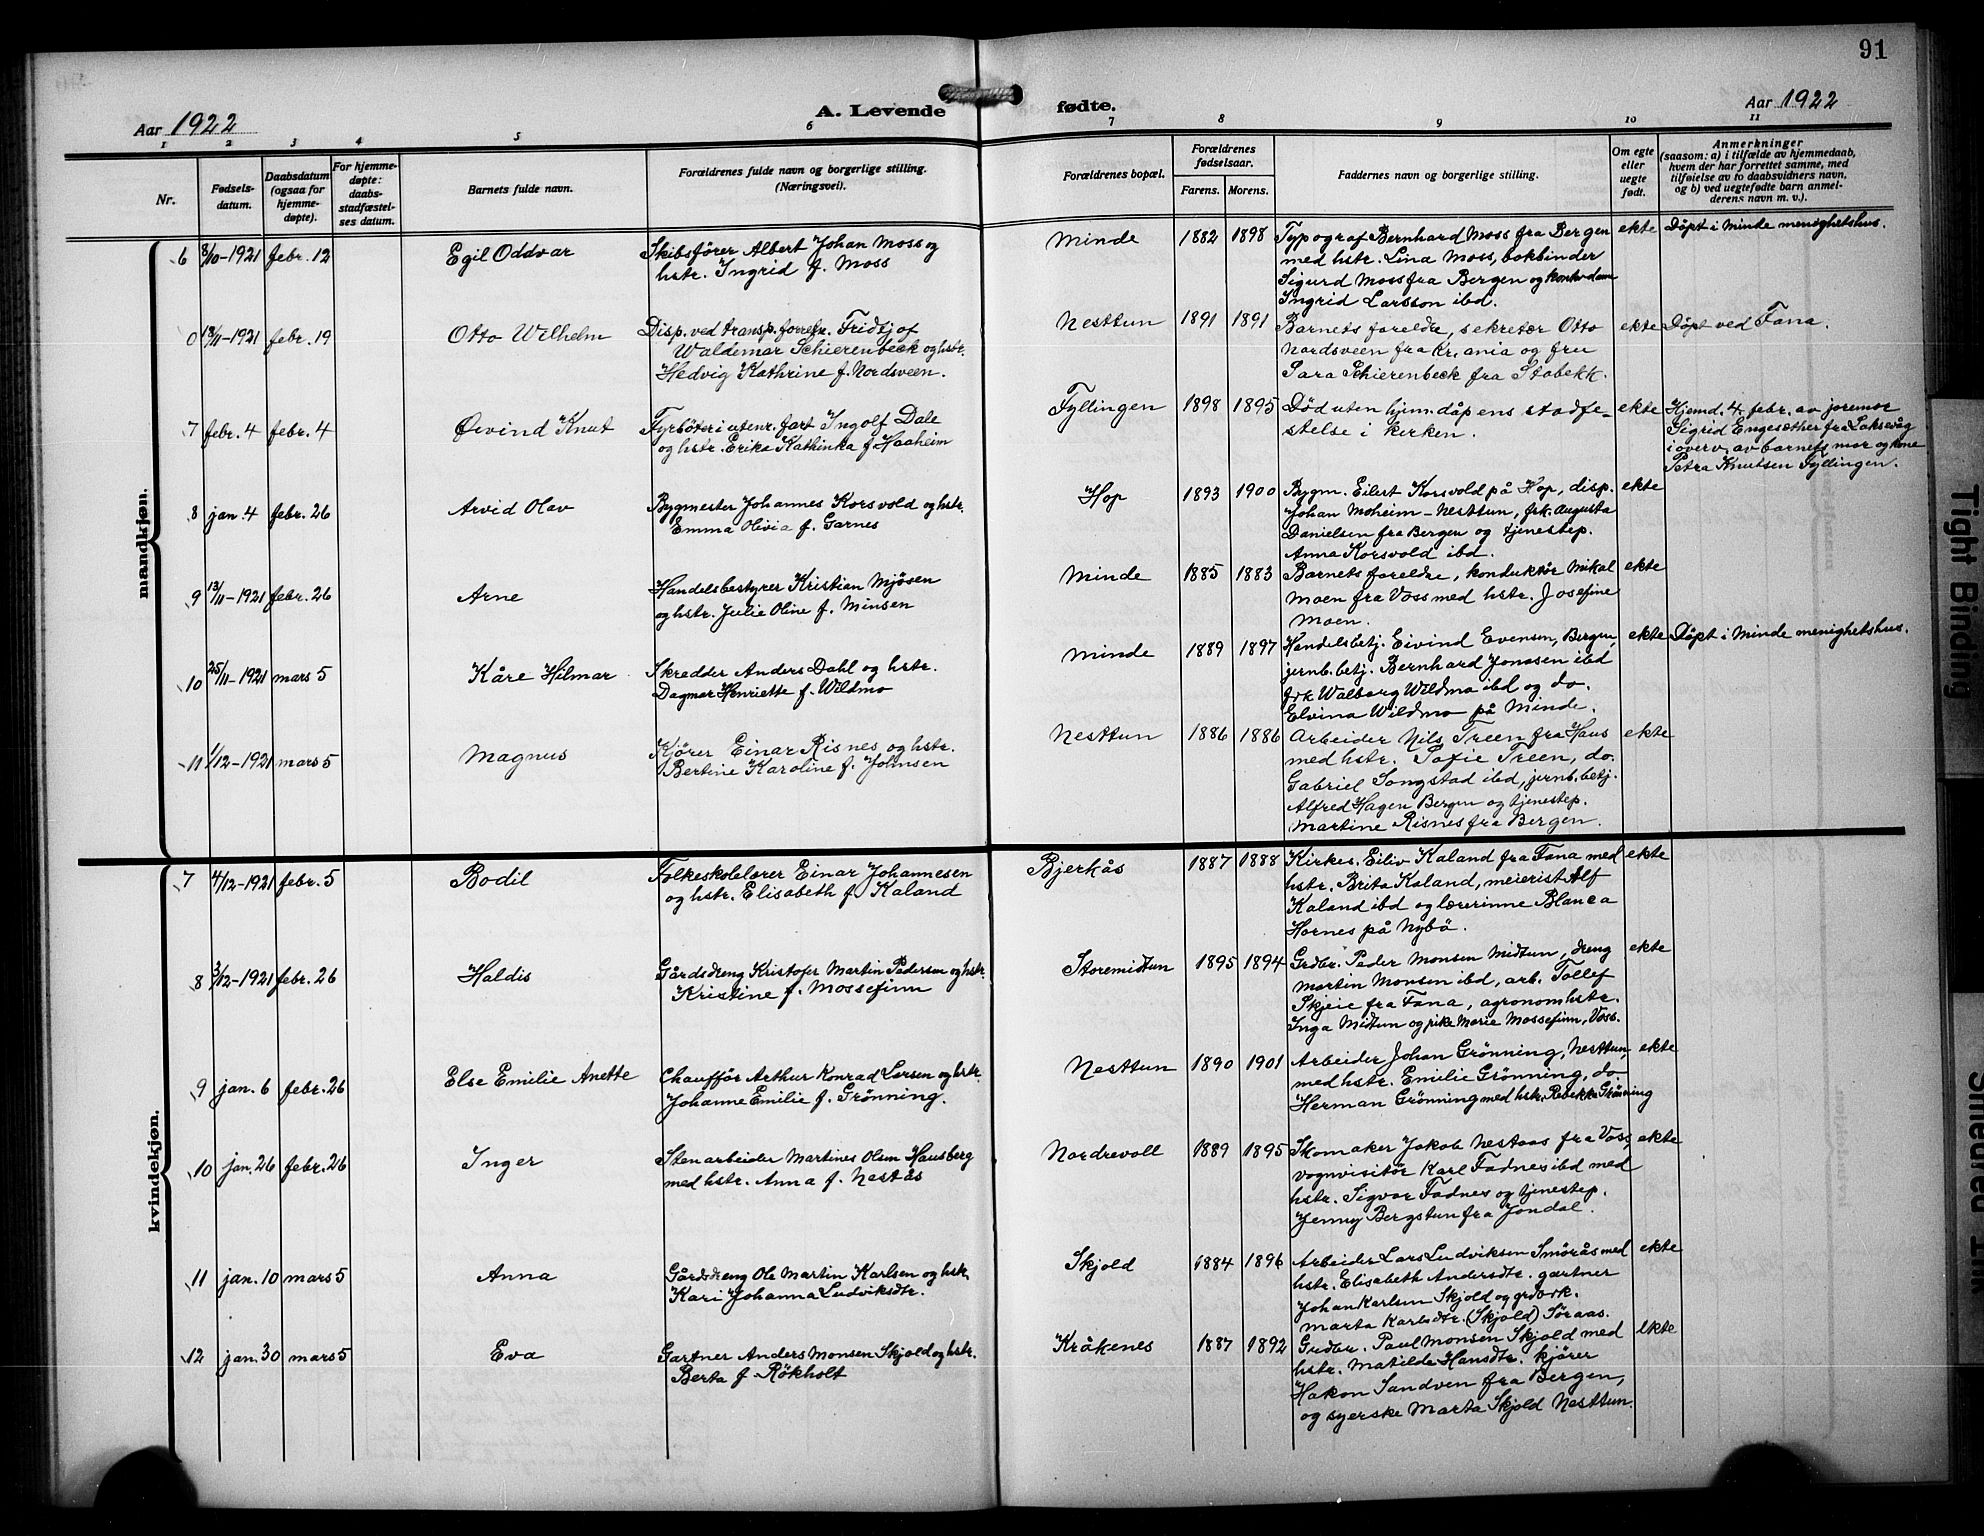 91
Aar 1922
A. Levende
fødte.
Aar 1922
1 2 3 4 5 6 7 8 9 10 11
Nr.
Fødsels-
datum.
Daabsdatum
(ogsaa for
hjemme-
døpte).
For hjemme-
døpte:
daabs-
stadfæstel-
ses datum.
Barnets fulde navn.
Forældrenes fulde navn og borgerlige stilling.
(Næringsvei).
Forældrenes bopæl.
Forældrenes
fødselsaar.
Farens. Morens.
Faddernes navn og borgerlige stilling.
Om egte
eller
uegte
født.
Anmerkninger
(saasom: a) i tilfælde av hjemmedaab,
hvem der har forrettet samme, med
tilføielse av to daabsvidners navn,
og b) ved uegtefødte barn anmel-
derens navn m. v.).
mandkjøn.
6 8/10-1921 febr. 12 Egil Oddvar
Skibsfører Albert Johan Moss og
hstr. Ingrid f. Moss
Minde 1882 1898
Typograf Bernhard Moss fra Bergen
med hstr. Lina Moss, bokbinder
Sigurd Moss fra Bergen og kontordame
Ingrid Larsson ibd.
ekte
Døpt i Minde menighetshus.
0 13/11-1921 febr. 19 Otto Wilhelm
Disp. ved transp. forretn. Fridtjof
Waldemar Schierenbeck og hstr.
Hedvig Kathrine f. Nordsveen.
Nesttun 1891 1891
Barnets foreldre, sekretær Otto
Nordsveen fra Kr.ania og fru
Sara Schierenbeck fra Stabekk.
ekte
Døpt ved Fana.
7 febr. 4 febr. 4 Øivind Knut
Fyrbøter i utenr. fart Ingolf Dale
og hstr. Erika Kathinka f. Haaheim
Fyllingen 1898 1895
Død uten hjem. dåpens stadfe-
stelse i kirken.
ekte
Hjemd. 4. febr. av jormor
Sigrid Engesæther fra Laksevåg
i overv. av barnets mor og kone
Petra Knutsen Fyllingen.
8 jan. 4 febr. 26 Arvid Olav
Bygmester Johannes Korsvold og hstr.
Emma Olivia f. Garnes
Hop 1893 1900
Bygm. Eilert Korsvold på Hop, disp.
Johan Moheim-Nesttun, frk. Augusta
Danielsen fra Bergen og tjenestep.
Anna Korsvold ibd.
ekte
9 13/11-1921 febr. 26 Arne
Handelsbestyrer Kristian Mjøsen
og hstr. Julie Oline f. Minsen
Minde 1885 1883
Barnets foreldre, konduktør Mikal
Moen fra Voss med hstr. Josefine
Moen.
ekte
10 25/11-1921 mars 5 Kåre Hilmar
Skredder Anders Dahl og hstr.
Dagmar Henriette f. Wildmo
Minde 1889 1897
Handelsbetj. Eivind Evensen, Bergen,
jernb.betj. Bernhard Jonasen ibd
frk Walborg Wildmo ibd og do.
Elvina Wildmo på Minde.
ekte
Døpt i Minde menighetshus.
11 1/12-1921 mars 5 Magnus
Kjører Einar Risnes og hstr.
Bertine Karoline f. Johnsen
Nesttun 1886 1886
Arbeider Nils Treen fra Haus
med hstr. Sofie Treen, do.
Gabriel Songstad ibd, jernb. betj.
Alfred Hagen Bergen og tjenestep.
Martine Risnes fra Bergen.
ekte
kvindekjøn.
7 4/12-1921 febr. 5 Bodil
Folkeskolelærer Einar Johannesen
og hstr. Elisabeth f. Kaland
Bjerkås 1887 1888
Kirkes. Eiliv Kaland fra Fana med
hstr. Brita Kaland, meierist Alf
Kaland ibd og lærerinne Blanca
Hornes på Nybø.
ekte
8 3/12-1921 febr. 26 Haldis
Gårdsdreng Kristofer Martin Pedersen og hstr.
Kristine f. Mossefinn
Storemidtun 1895 1894
Grdbr. Peder Monsen Midtun, dreng
Martin Monsen ibd, arb. Tollef
Skjeie fra Fana, agronomhstr.
Inga Midtun og pike Marie Mossefinn, Voss.
ekte
9 jan. 6 febr. 26 Else Emilie Anette
Chauffør Arthur Konrad Larsen og hstr.
Johanne Emilie f. Grønning.
Nesttun 1890 1901
Arbeider Johan Grønning, Nesttun,
med hstr. Emilie Grønning, do
Herman Grønning med hstr. Rebekka Grønning
ekte
10 jan. 26 febr. 26 Inger
Stenarbeider Martines Olsen Hausberg
med hstr. Anna f. Nestås
Nordrevoll 1889 1895
Skomaker Jakob Nestaas fra Voss,
vognvisitør Karl Fadnes ibd med
hstr. Sigvor Fadnes og tjenestep.
Jenny Bergstun fra Jondal.
ekte
11 jan. 10 mars 5 Anna
Gårdsdreng Ole Martin Karlsen og hstr.
Kari Johanna Ludviksdtr.
Skjold 1884 1896
Arbeider Lars Ludviksen Smørås med
hstr. Elisabeth Andersdtr. gartner
Johan Karlsen Skjold og grdbrk.
Marta Karlsdtr. (Skjold) Søraas.
ekte
12 jan. 30 mars 5 Eva
Gartner Anders Monsen Skjold og hstr.
Berta f. Røkholt
Kråkenes 1887 1892
Grdbr. Paul Monsen Skjold med
hstr. Matilde Hansdtr. kjører
Hakon Sandven fra Bergen,
og syerske Marta Skjold Nesttun.
ekte
Tight Binding
Smeared Ink